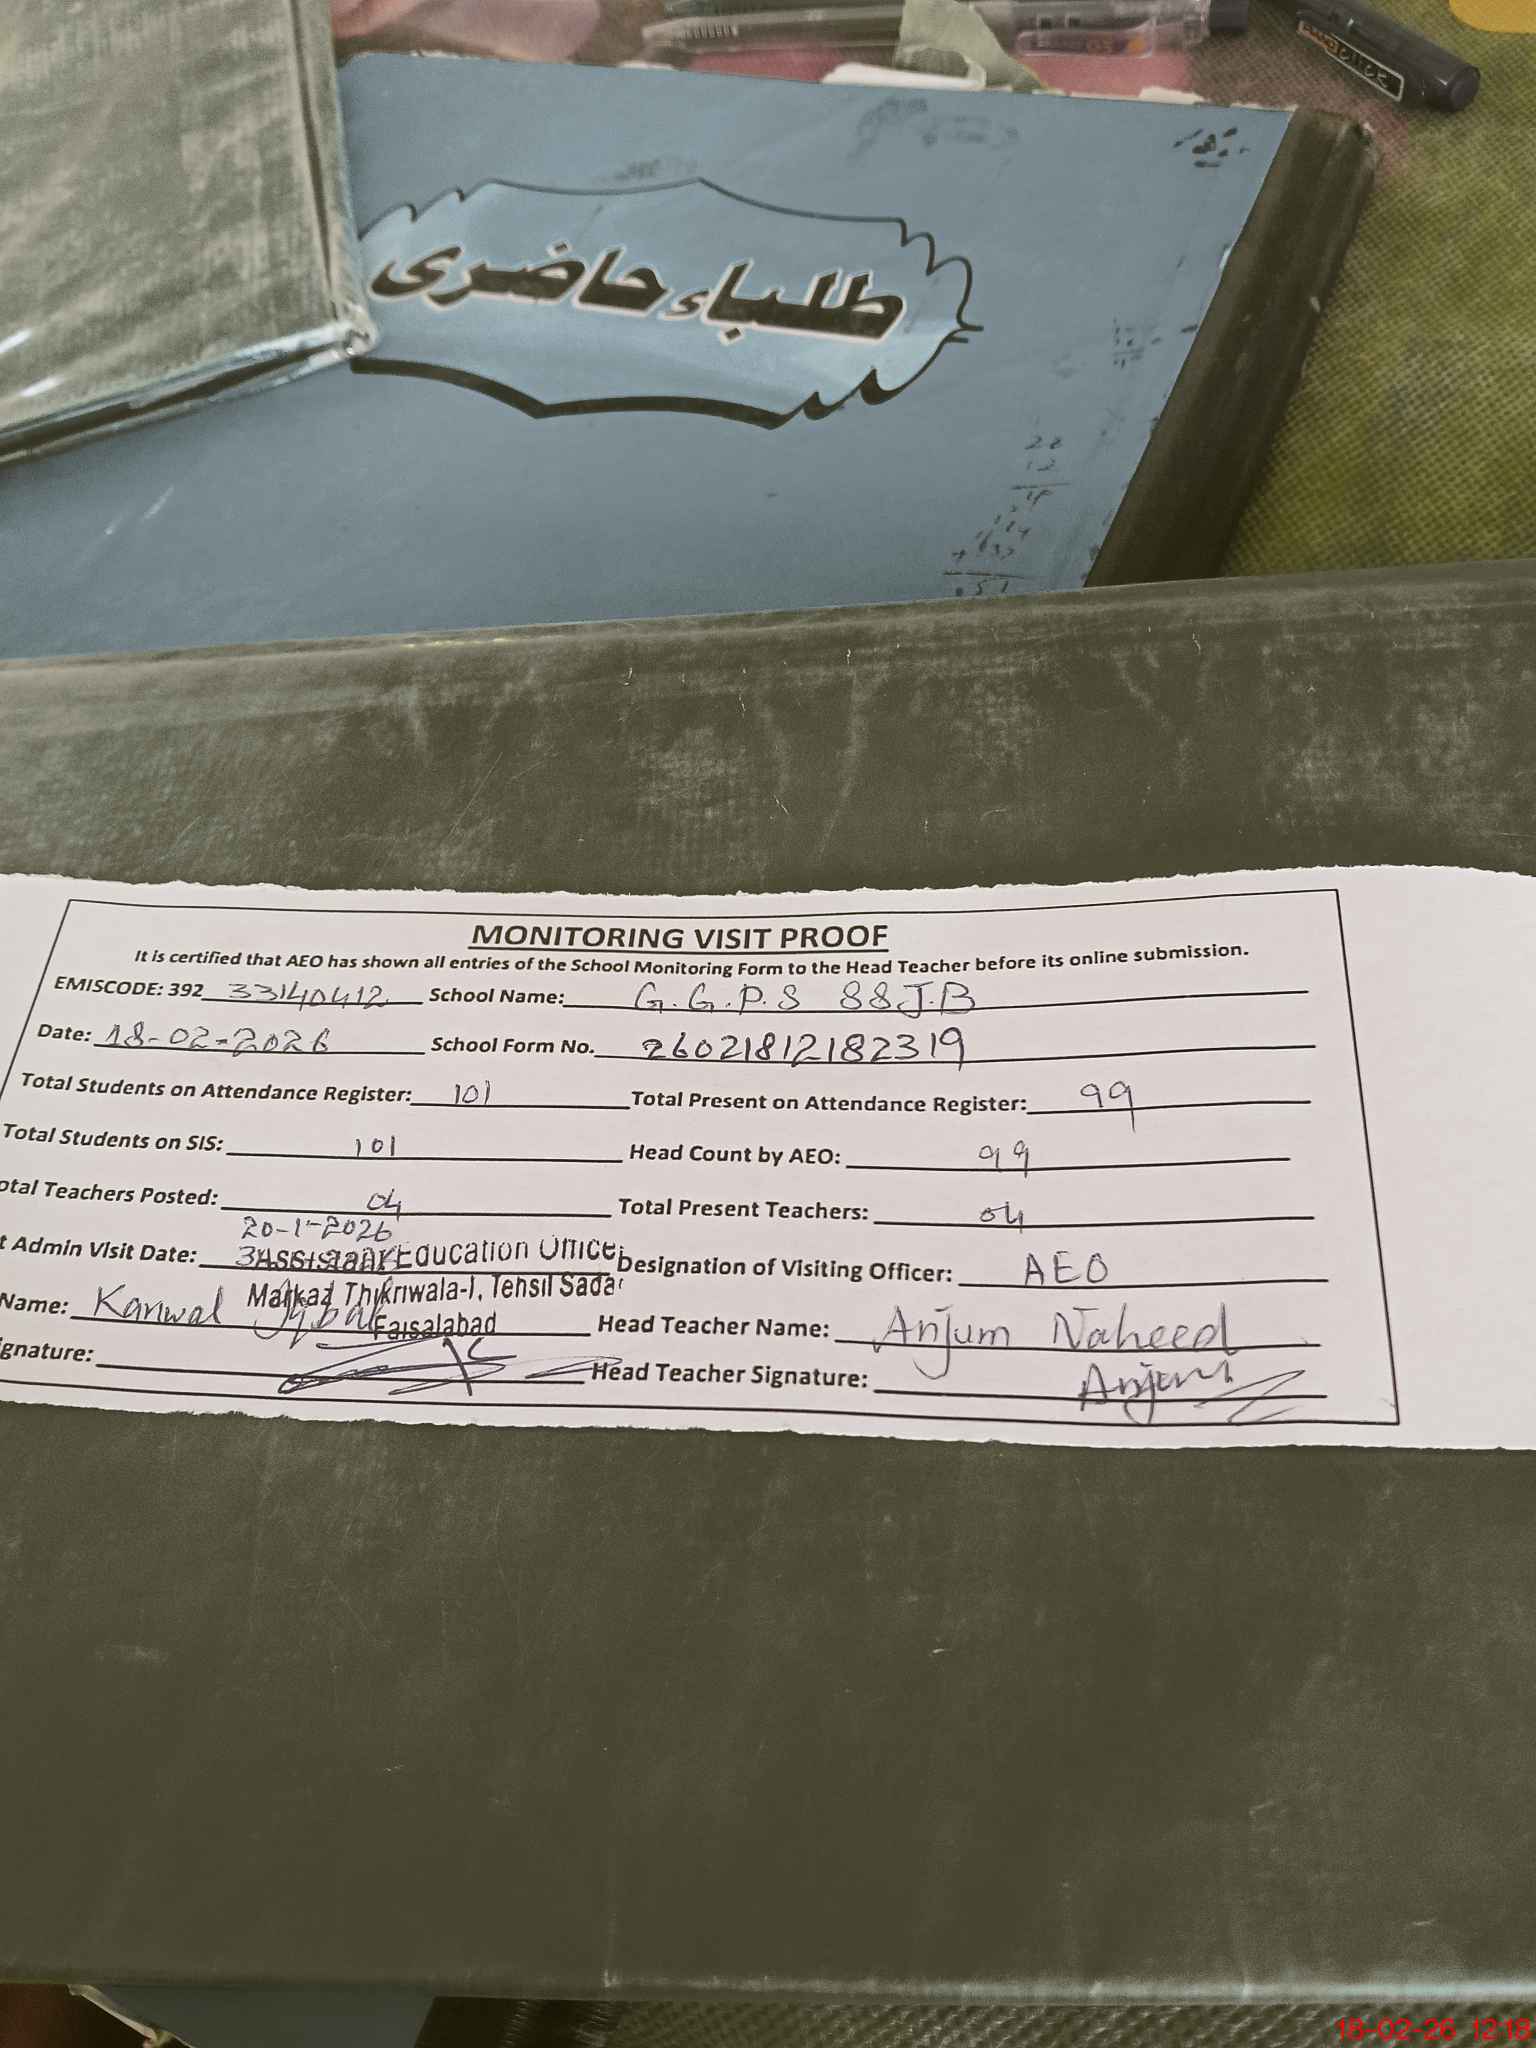 طلباء حاضری
22
12
MONITORING VISIT PROOF
It is certified that AEO has shown all entries of the School Monitoring Form to the Head Teacher before its online submission.
EMISCODE: 392 33140412 School Name: G.G.P.S 88J.B
Date: 18-02-2026 School Form No. 26021812182319
Total Students on Attendance Register: 101 Total Present on Attendance Register: 99
Total Students on SIS: 101 Head Count by AEO: 99
otal Teachers Posted: 04 Total Present Teachers: 04
20-1-2026
t Admin Visit Date: Designation of Visiting Officer: AEO
Assistant Education Officer
Markaz Thikriwala-I, Tehsil Sadar
Faisalabad
Name: Kanwal Iqbal Head Teacher Name: Anjum Naheed
gnature: Head Teacher Signature: Anjum
18-02-26 12:18